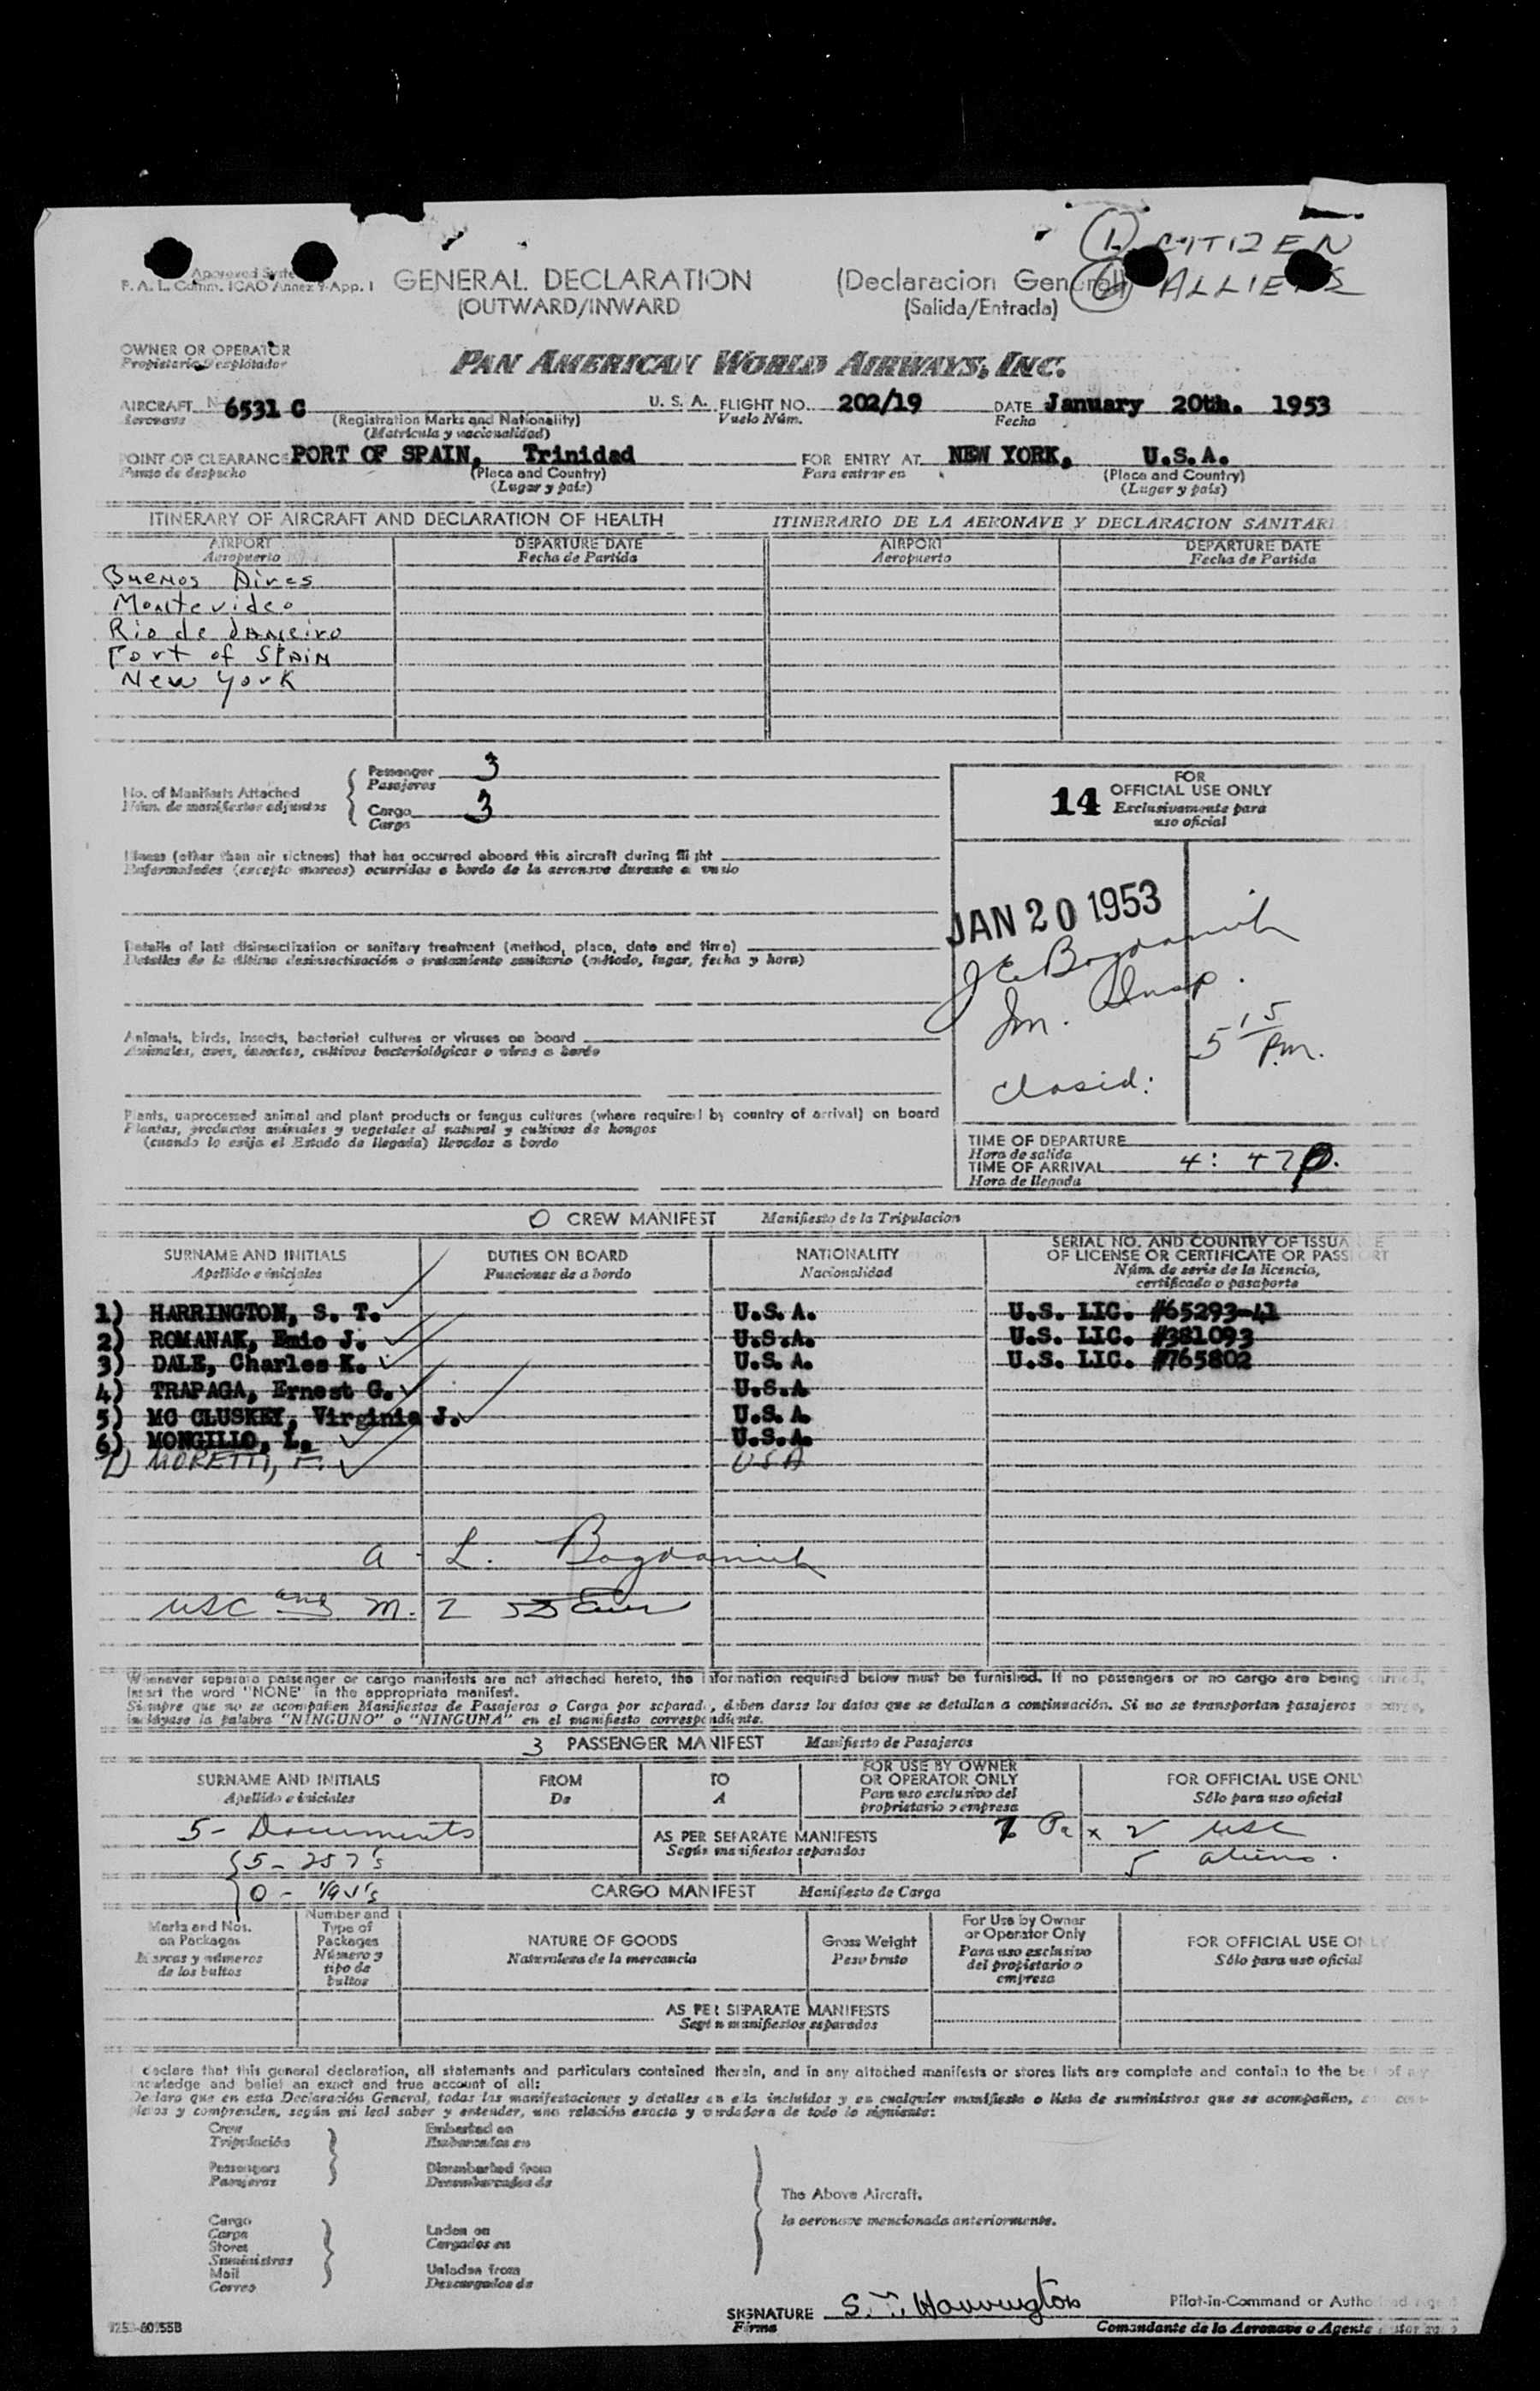 (1) CITIZEN
ALLIENS
Approved System
F. A. L. Comm. ICAO Annex 9-App. 1
GENERAL DECLARATION (Declaracion General)
(OUTWARD/INWARD (Salida/Entrada)
OWNER OR OPERATOR
Propietario Explotador
PAN AMERICAN WORLD AIRWAYS, INC.
AIRCRAFT N 6531 C U. S. A. FLIGHT NO. 202/19 DATE January 20th. 1953
Aeronave (Registration Marks and Nationality) Vuelo Núm. Fecha
(Matrícula y nacionalidad)
POINT OF CLEARANCE PORT OF SPAIN, Trinidad FOR ENTRY AT NEW YORK, U.S.A.
Punto de despacho (Place and Country) Para entrar en (Place and Country)
(Lugar y país) (Lugar y país)
ITINERARY OF AIRCRAFT AND DECLARATION OF HEALTH ITINERARIO DE LA AERONAVE Y DECLARACION SANITARI
AIRPORT DEPARTURE DATE AIRPORT DEPARTURE DATE
Aeropuerto Fecha de Partida Aeropuerto Fecha de Partida
Buenos Aires
Montevideo
Rio de Janeiro
Port of Spain
New York
No. of Manifests Attached
Núm. de manifiestos adjuntos
Passenger 3
Pasajeros
Cargo 3
Carga
14 FOR
OFFICIAL USE ONLY
Exclusivamente para
uso oficial
Illness (other than air sickness) that has occurred aboard this aircraft during flight
Enfermedades (excepto mareos) ocurridas a bordo de la aeronave durante el vuelo
Details of last disinsectization or sanitary treatment (method, place, date and time)
Detalles de la última desinsectización o tratamiento sanitario (método, lugar, fecha y hora)
Animals, birds, insects, bacterial cultures or viruses on board
Animales, aves, insectos, cultivos bacteriológicos o virus a bordo
Plants, unprocessed animal and plant products or fungus cultures (where required by country of arrival) on board
Plantas, productos animales y vegetales al natural y cultivos de hongos
(cuando lo exija el Estado de llegada) llevados a bordo
JAN 20 1953
Bogdanich
Im. Insp.
5 15 P.m.
closed:
TIME OF DEPARTURE
Hora de salida
TIME OF ARRIVAL 4: 47 p.
Hora de llegada
0 CREW MANIFEST Manifiesto de la Tripulacion
SURNAME AND INITIALS DUTIES ON BOARD NATIONALITY SERIAL NO. AND COUNTRY OF ISSUANCE
Apellido e iniciales Funciones de a bordo Nacionalidad OF LICENSE OR CERTIFICATE OR PASSPORT
Núm. de serie de la licencia,
certificado o pasaporte
1) HARRINGTON, S. T. U.S.A. U.S. LIC. #65293-41
2) ROMANAK, Emio J. U.S.A. U.S. LIC. #381093
3) DALE, Charles K. U.S.A. U.S. LIC. #765802
4) TRAPAGA, Ernest G. U.S.A
5) MC CLUSKEY, Virginia J. U.S.A
6) MONGILLO, L. U.S.A.
7) MORETTI, F. USA
a. L. Bogdanich
usc
Whenever separate passenger or cargo manifests are not attached hereto, the information required below must be furnished. If no passengers or no cargo are being carried,
insert the word "NONE" in the appropriate manifest.
Siempre que no se acompañen Manifiestos de Pasajeros o Carga por separado, deben darse los datos que se detallan a continuación. Si no se transportan pasajeros o carga,
inclúyase la palabra "NINGUNO" o "NINGUNA" en el manifiesto correspondiente.
3 PASSENGER MANIFEST Manifiesto de Pasajeros
SURNAME AND INITIALS FROM TO FOR USE BY OWNER FOR OFFICIAL USE ONLY
Apellido e iniciales De A OR OPERATOR ONLY Sólo para uso oficial
Para uso exclusivo del
proprietario o empresa
5- Documents AS PER SEPARATE MANIFESTS 7 Pax 2 usc
5- 257's Según manifiestos separados 5 aliens.
0- CARGO MANIFEST Manifiesto de Carga
Marks and Nos.
on Packages
Marcas y números
de los bultos
Number and
Type of
Packages
Número y
tipo de
bultos
NATURE OF GOODS
Naturaleza de la mercancia
Gross Weight
Peso bruto
For Use by Owner
or Operator Only
Para uso exclusivo
del propietario o
empresa
FOR OFFICIAL USE ONLY
Sólo para uso oficial
AS PER SEPARATE MANIFESTS
Según manifiestos separados
declare that this general declaration, all statements and particulars contained therein, and in any attached manifests or stores lists are complete and contain to the best of my
knowledge and belief an exact and true account of all:
Declaro que en esta Declaración General, todas las manifestaciones y detalles en ella incluidos y en cualquier manifiesto o lista de suministros que se acompañen,
pletos y comprenden, según mi leal saber y entender, una relación exacta y verdadera de todo lo siguiente:
Crew Embarked on
Tripulación Embarcados en
Passengers Disembarked from
Pasajeros Desembarcados de
The Above Aircraft.
la aeronave mencionada anteriormente.
Cargo
Carga Laden on
Stores Cargados en
Suministros
Mail Unladen from
Correo Descargados de
SIGNATURE S. T. Harrington Pilot-in-Command or Authorized Agent
Firma Comandante de la Aeronave o Agente